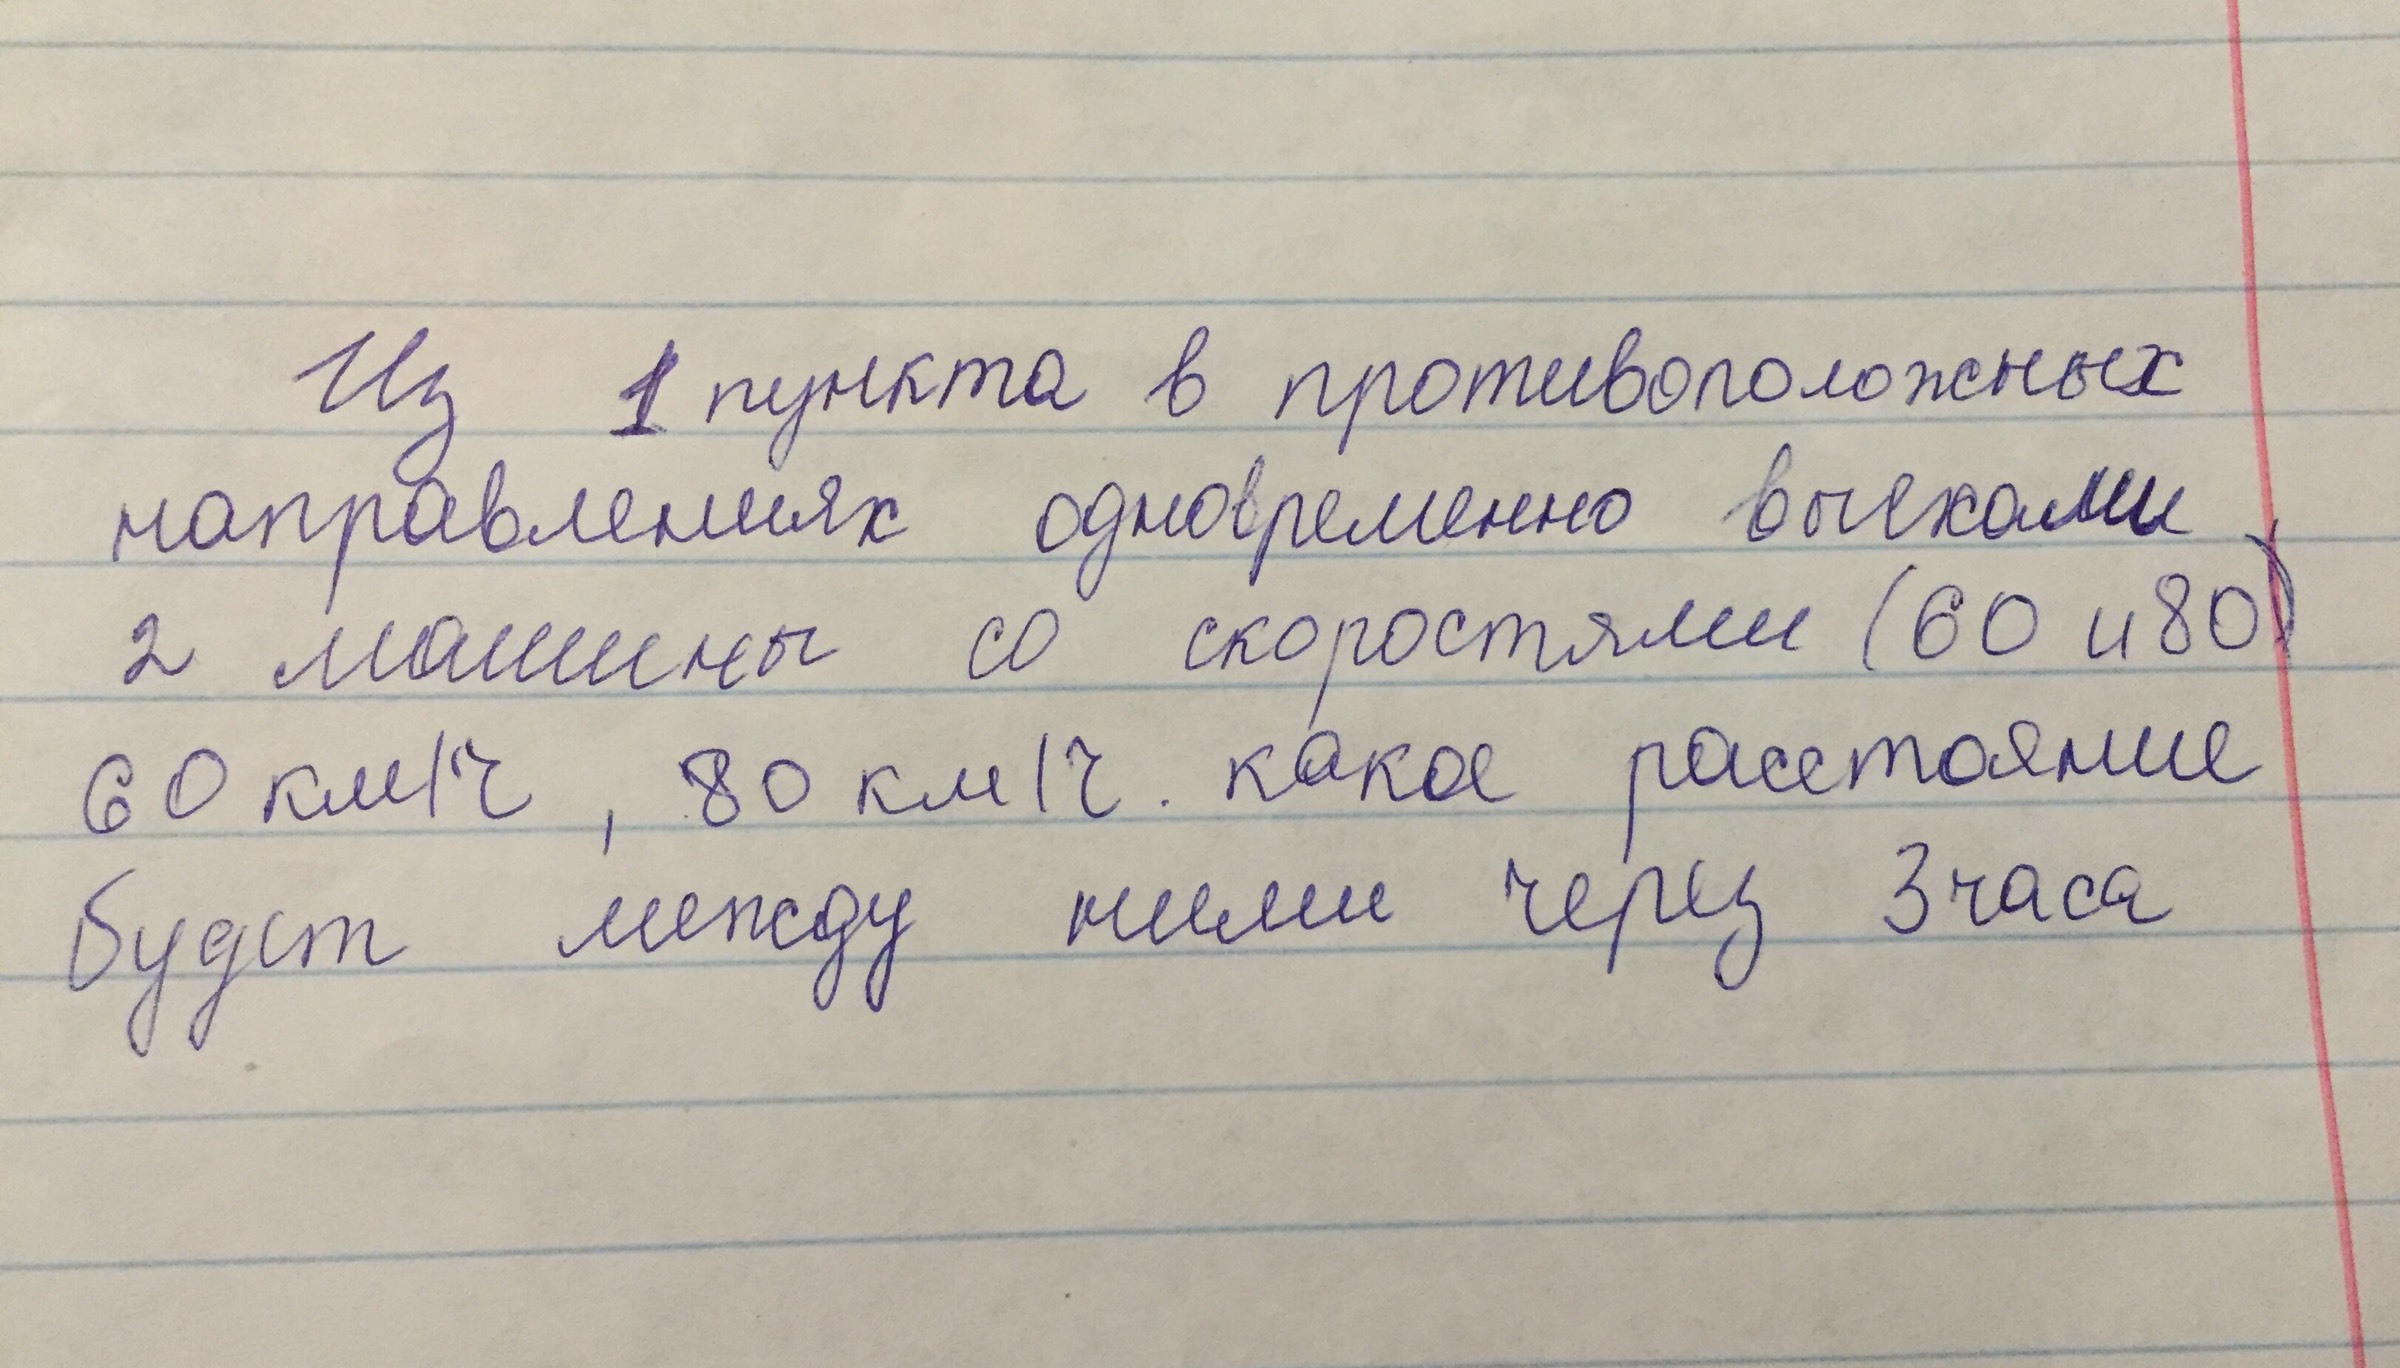 Из 1 пункта в противоположных
направлениях одновременно выехали
2 машины со скоростями (60 и 80)
60 км/ч, 80 км/ч. какое расстояние
будет между ними через 3 часа